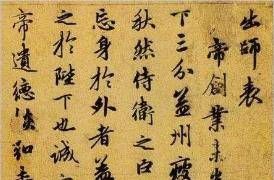 出師表
帝創業未
下三分益州疲
秋然侍衛之臣
忘身於外者蓋
之於陛下也誠
帝遺德恢弘志